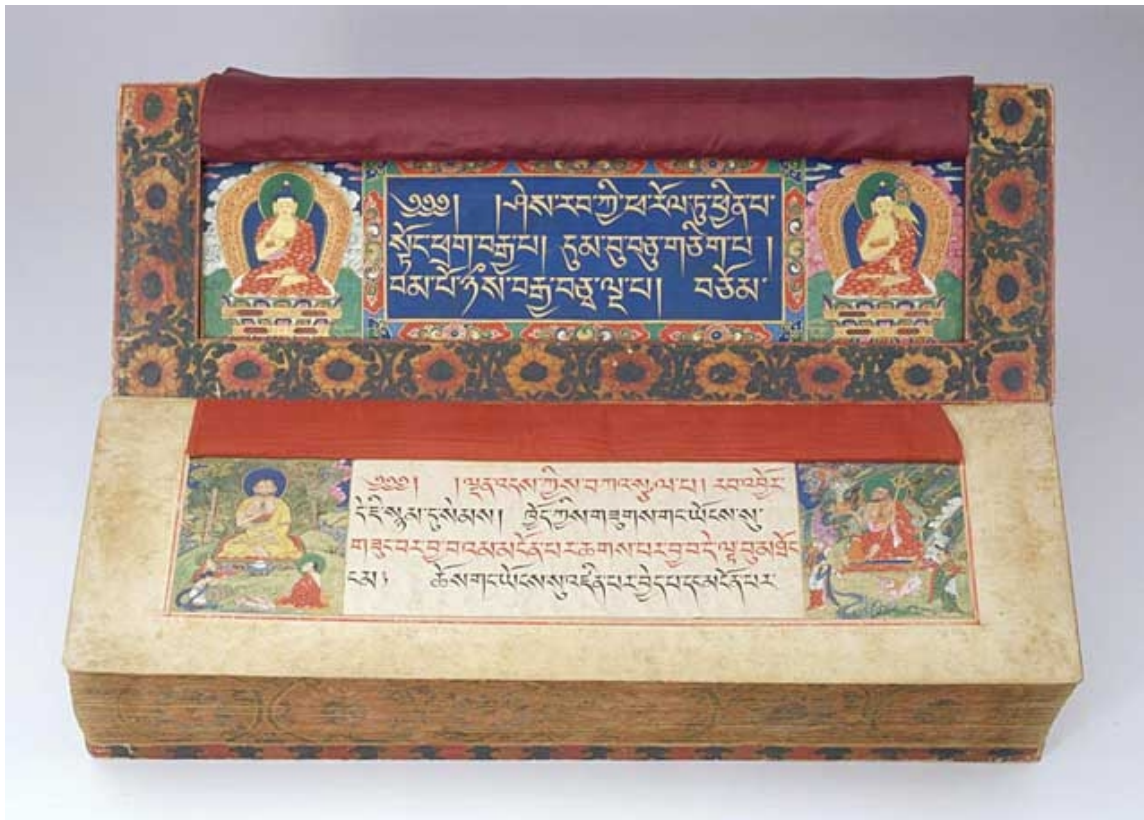 ༄༅༅། །ཤེས་རབ་ཀྱི་ཕ་རོལ་ཏུ་ཕྱིན་པ་
སྟོང་ཕྲག་བརྒྱ་པ། དུམ་བུ་བཅུ་གཅིག་པ །
བམ་པོ་ཉིས་བརྒྱ་བཅུ་པ། བཅོམ་
༄༅༅། །ལྡན་འདས་ཀྱིས་བཀའ་སྩལ་པ། རབ་འབྱོར་
དེ་ཇི་སྙམ་དུ་སེམས། ཁྱོད་ཀྱིས་གཟུགས་གང་ཡོངས་སུ་
གཟུང་བར་བྱ་བའམ་མངོན་པར་ཆགས་པར་བྱ་བ་དེ་ལྟ་བུ་མཐོང་
ངམ། ཆོས་གང་ཡོངས་སུ་འཛིན་པར་བྱེད་པ་དང་མངོན་པར་